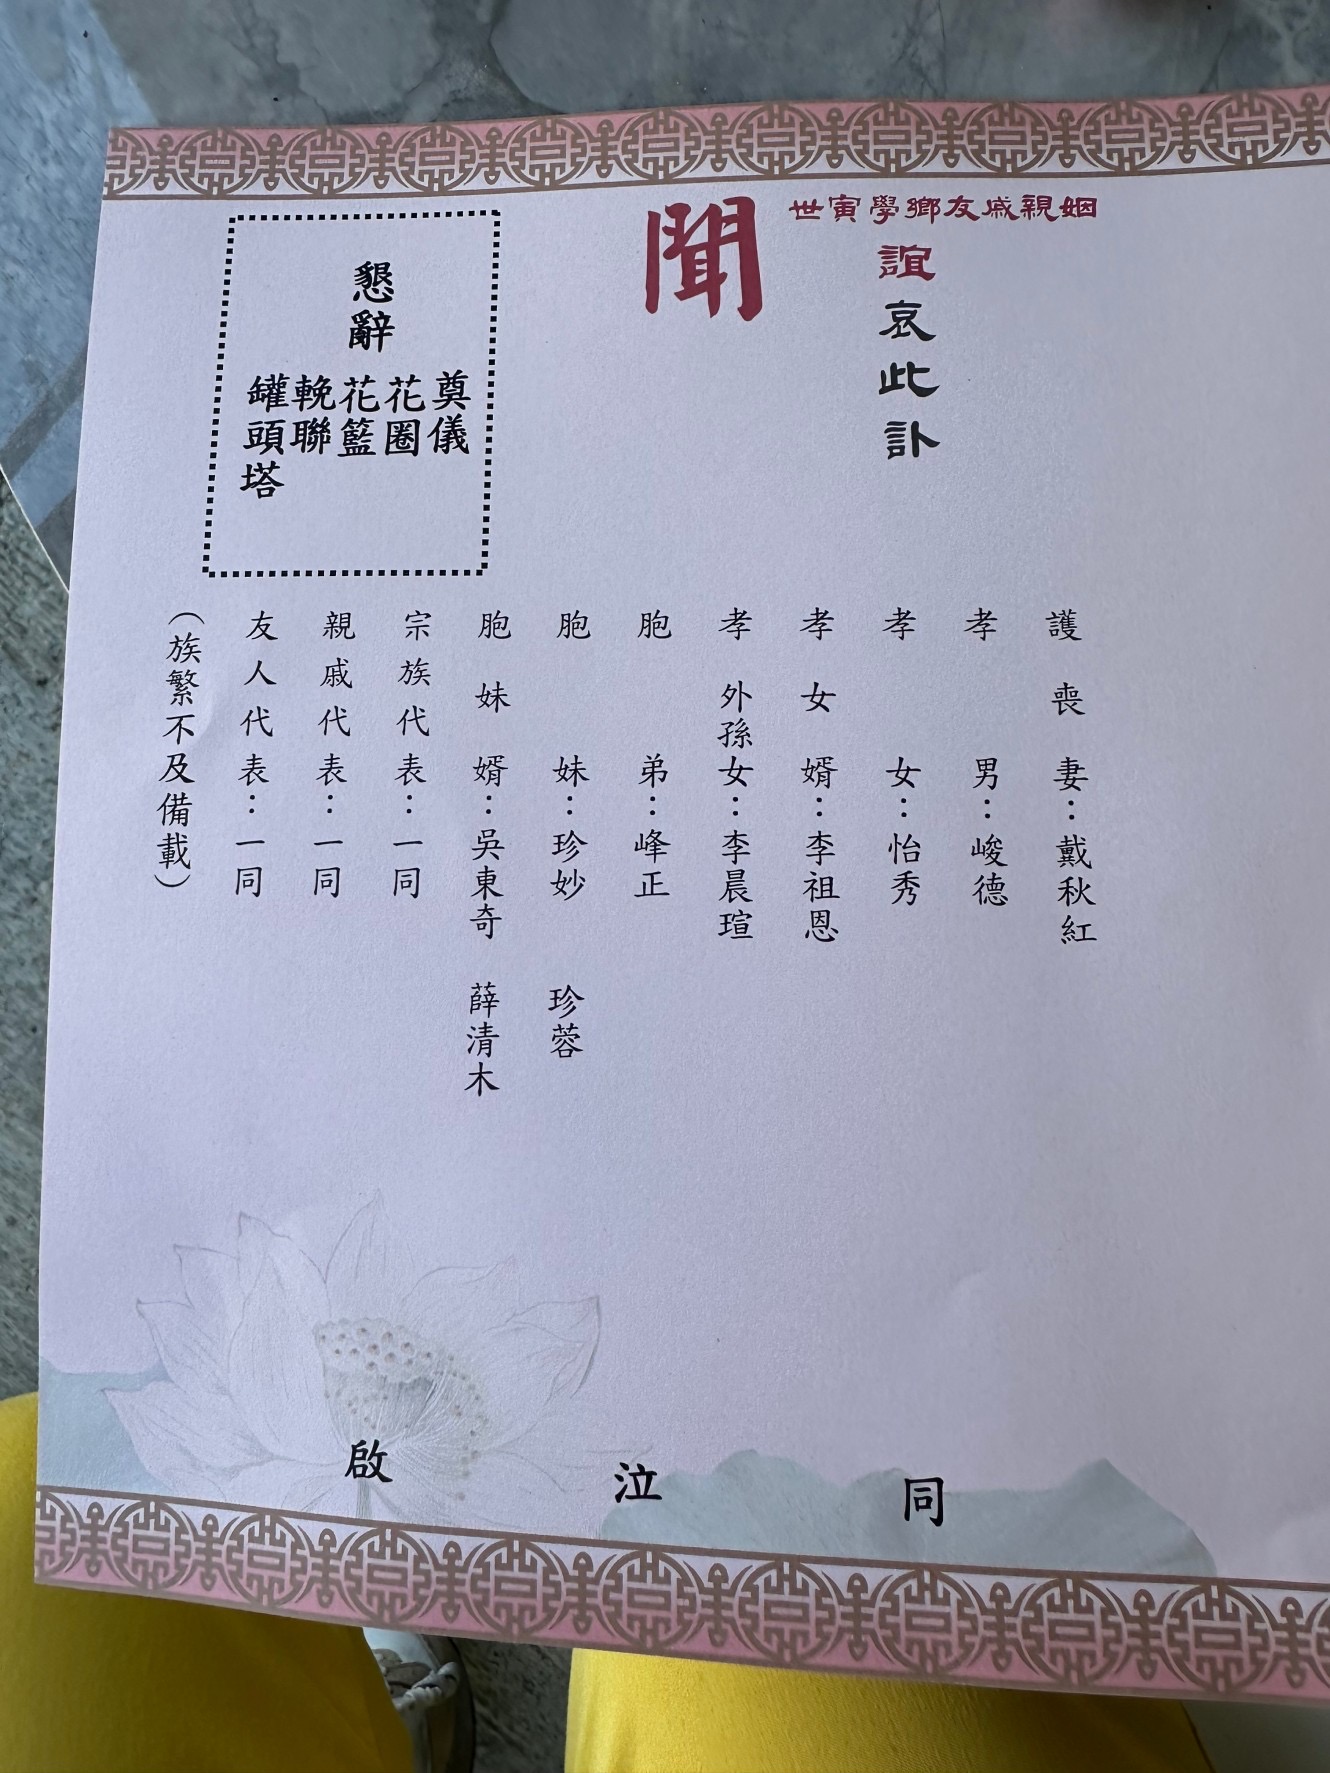 姻親戚友鄉學寅世
誼哀此訃
聞
護喪妻：戴秋紅
孝男：峻德
孝女：怡秀
孝女婿：李祖恩
孝外孫女：李晨瑄
胞弟：峰正
胞妹：珍妙 珍蓉
胞妹婿：吳東奇 薛清木
宗族代表：一同
親戚代表：一同
友人代表：一同
（族繁不及備載）
懇辭
奠儀
花圈
花籃
輓聯
罐頭塔
同泣啟